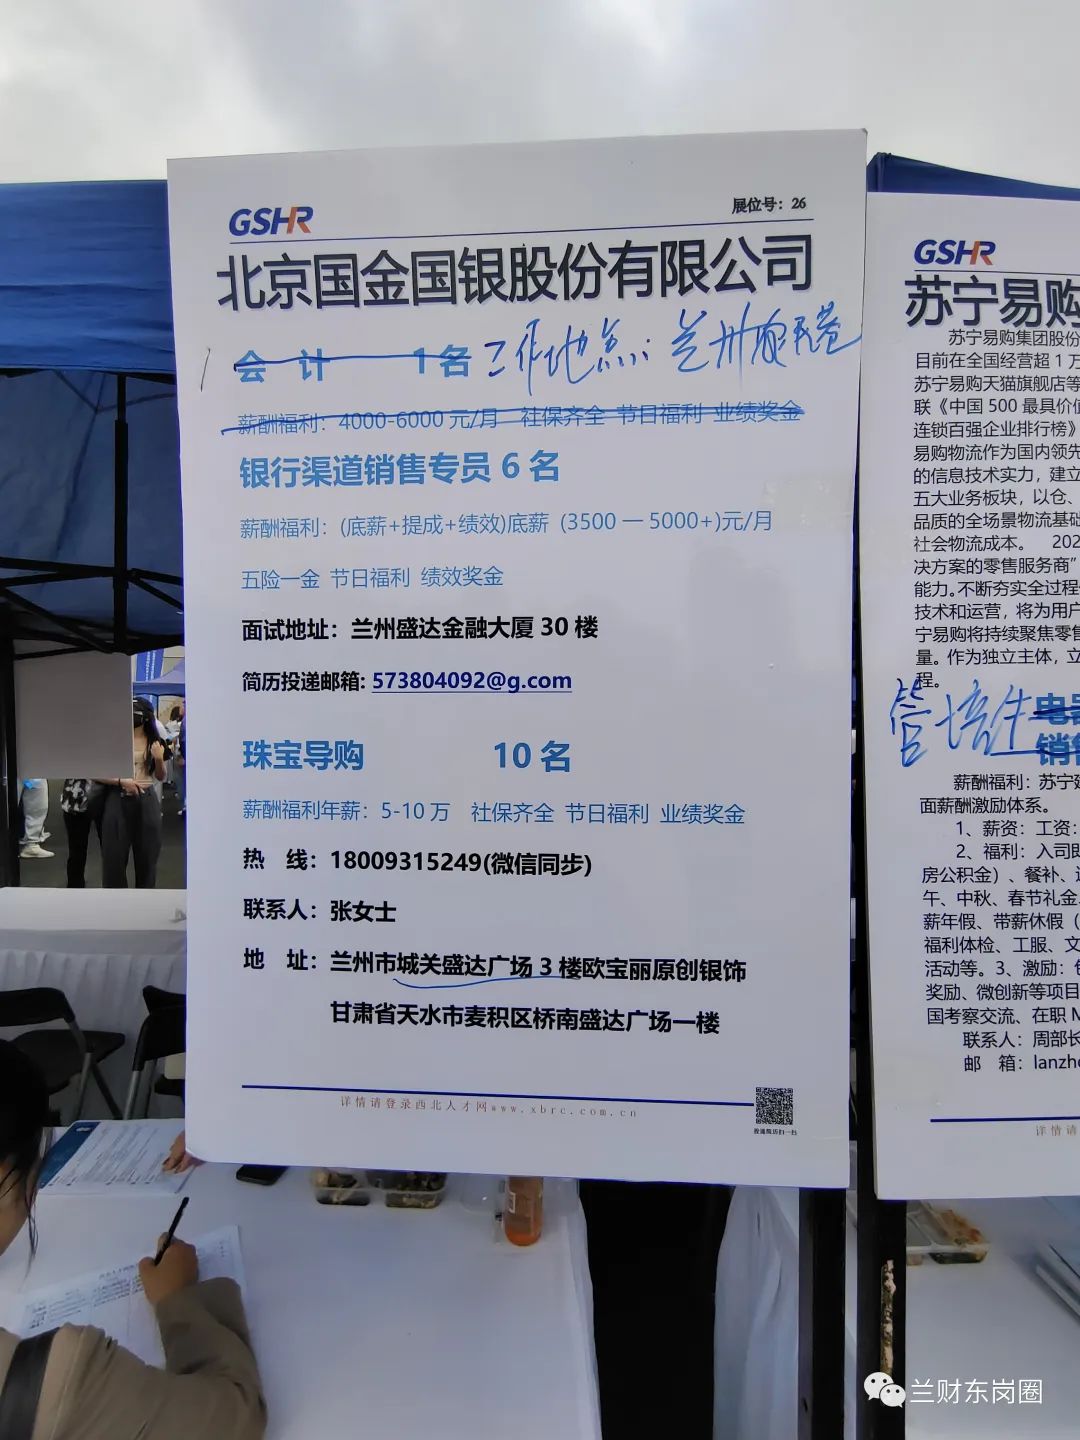 GSHR
展位号：26
北京国金国银股份有限公司
会 计 1名 工作地点：兰州
薪酬福利：4000-6000元/月 社保齐全 节日福利 业绩奖金
银行渠道销售专员 6 名
薪酬福利：(底薪+提成+绩效)底薪 (3500 一 5000+)元/月
五险一金 节日福利 绩效奖金
面试地址：兰州盛达金融大厦 30 楼
简历投递邮箱: 573804092@g.com
珠宝导购 10 名
薪酬福利年薪：5-10 万 社保齐全 节日福利 业绩奖金
热 线：18009315249(微信同步)
联系人：张女士
地 址：兰州市城关盛达广场 3 楼欧宝丽原创银饰
甘肃省天水市麦积区桥南盛达广场一楼
详情请登录西北人才网www.xbrc.com.cn
GSHR
苏宁易购
苏宁易购集团股份
目前在全国经营超 1 万
苏宁易购天猫旗舰店等
联《中国 500 最具价值
连锁百强企业排行榜》
易购物流作为国内领先
的信息技术实力，建立
五大业务板块，以仓、
品质的全场景物流基础
社会物流成本。 202
决方案的零售服务商”
能力。不断夯实全过程
技术和运营，将为用户
宁易购将持续聚焦零售
量。作为独立主体，立
程。
管培生 电器
销售
薪酬福利：苏宁建
面薪酬激励体系。
1、薪资：工资：
2、福利：入司即
房公积金）、餐补、
午、中秋、春节礼金
薪年假、带薪休假（
福利体检、工服、文
活动等。3、激励：
奖励、微创新等项目
国考察交流、在职 M
联系人：周部长
邮 箱：lanzhe
详情请
兰财东岗圈